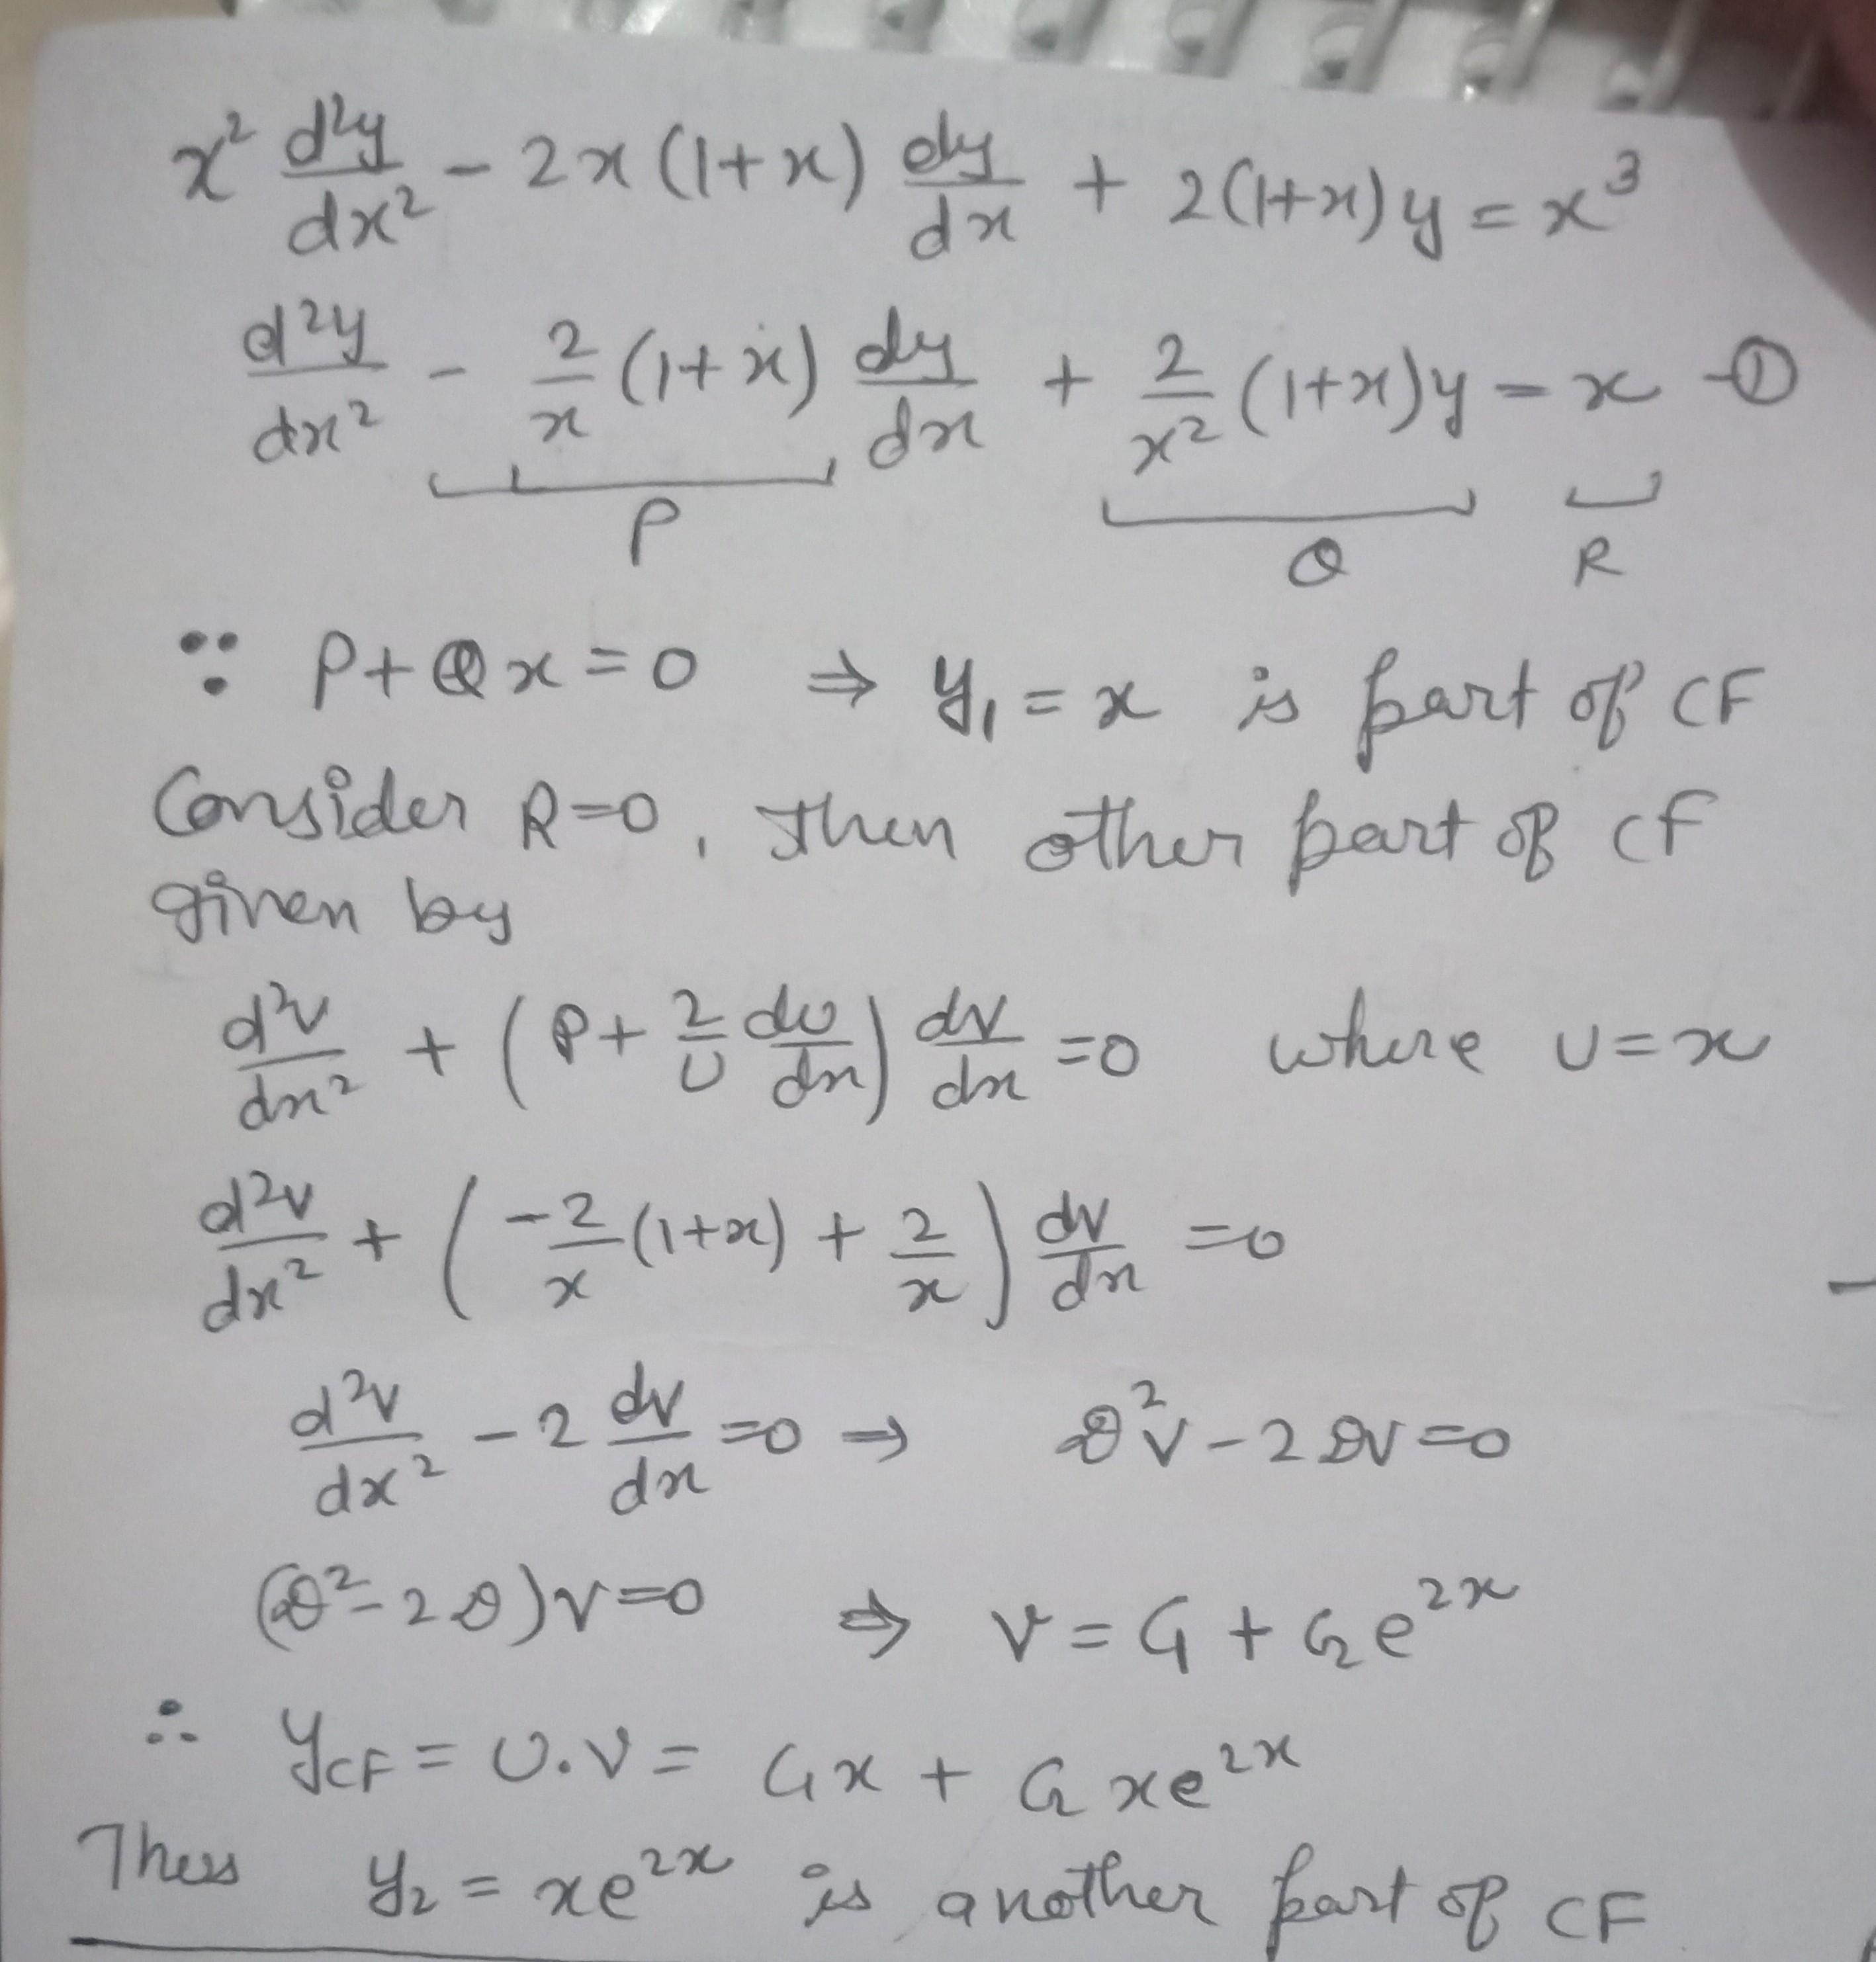 x² d²y/dx² - 2x(1+x) dy/dx + 2(1+x)y = x³
d²y/dx² - 2/x (1+x) dy/dx + 2/x² (1+x)y = x -①
P Q R
∵ P+Qx=0 ⇒ y₁ = x is part of CF
Consider R=0, then other part of CF
given by
d²v/dx² + (P + 2/u du/dx) dv/dx =0 where u=x
d²v/dx² + (-2/x (1+x) + 2/x) dv/dx =0
d²v/dx² - 2 dv/dx =0 ⇒ D²v - 2Dv=0
(D²-2D)v=0 ⇒ v = C₁ + C₂e²ˣ
∴ yCF = u.v = C₁x + C₂ xe²ˣ
Thus y₂ = xe²ˣ is another part of CF